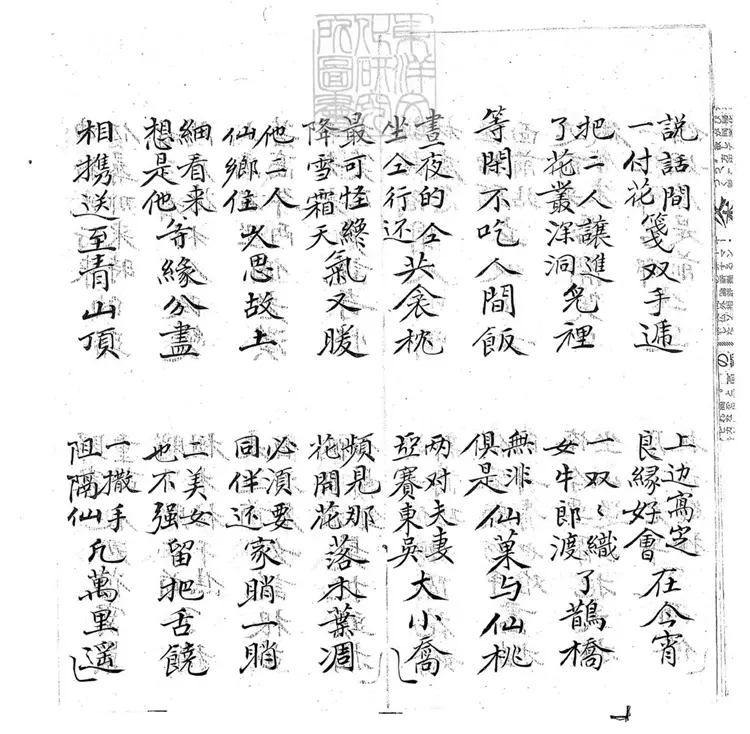 說話間一付花箋双手遞
上边寫定良緣好會在今宵
把二人讓進了花叢深洞兒裡
一双〻織女牛郎渡了鵲橋
等閑不吃人間飯
無非俱是仙菓与仙桃
晝夜的仝坐仝行还共衾枕
两对夫妻亞賽東吳大小喬
最可怪終降雪霜天氣又暖
頻見那花開花落木葉凋
他二人仙鄉住久思故土
必須要同伴还家睄一睄
細看来想是他等緣分盡
二美女也不强留把舌饒
相携送至青山頂
一撒手阻隔仙凡萬里遥